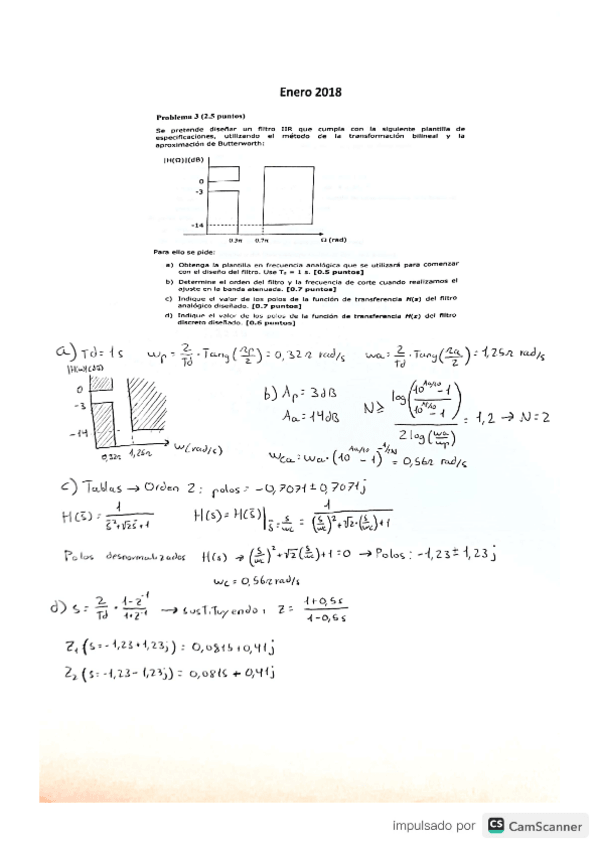 Enero 2018
Problema 3 (2.5 puntos)
Se pretende diseñar un filtro IIR que cumpla con la siguiente plantilla de
especificaciones, utilizando el método de la transformación bilineal y la
aproximación de Butterworth:
|H(Ω)|(dB)
0
-3
-14
0.3π 0.7π Ω (rad)
Para ello se pide:
a) Obtenga la plantilla en frecuencia analógica que se utilizará para comenzar
con el diseño del filtro. Use Td = 1 s. [0.5 puntos]
b) Determine el orden del filtro y la frecuencia de corte cuando realizamos el
ajuste en la banda atenuada. [0.7 puntos]
c) Indique el valor de los polos de la función de transferencia H(s) del filtro
analógico diseñado. [0.7 puntos]
d) Indique el valor de los polos de la función de transferencia H(z) del filtro
discreto diseñado. [0.6 puntos]
a) Td = 1s wp = 2/Td · Tang(Ωp/2) = 0,32π rad/s wa = 2/Td · Tang(Ωa/2) = 1,25π rad/s
0
-3
-14
0,32π 1,25π w(rad/s)
b) Ap = 3dB
Aa = 14dB
N ≥ log((10^Aa/10 - 1)/(10^Ap/10 - 1)) / 2log(wa/wp) = 1,2 → N = 2
wca = wa·(10^Aa/10 - 1)^-1/2N = 0,56π rad/s
c) Tablas → Orden 2: polos = -0,7071 ± 0,7071j
H(s̄) = 1/(s̄²+√2s̄+1) H(s) = H(s̄)|s̄=s/wc = 1/((s/wc)²+√2·(s/wc)+1
Polos desnormalizados H(s) → (s/wc)²+√2(s/wc)+1=0 → Polos: -1,23 ± 1,23j
wc = 0,56π rad/s
d) s = 2/Td · 1-z⁻¹/1+z⁻¹ → sustituyendo: z = 1+0,5s/1-0,5s
Z₁(s=-1,23+1,23j) = 0,0815+0,41j
Z₂(s=-1,23-1,23j) = 0,0815+0,41j
impulsado por CS CamScanner